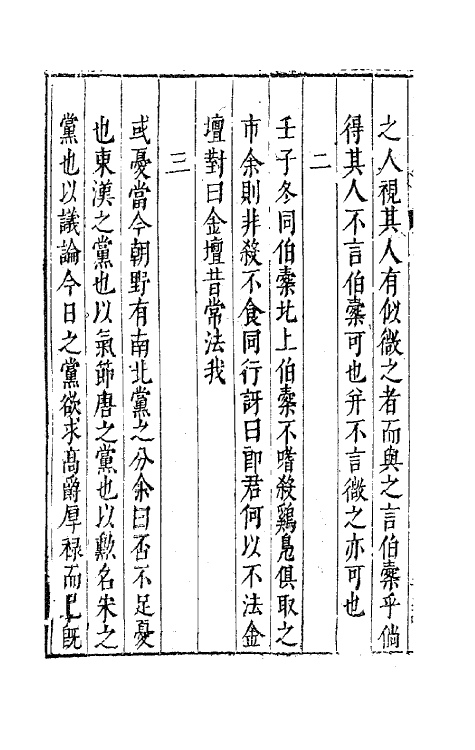 之人視其人有似徵之者而與之言伯橐乎倘
得其人不言伯橐可也并不言徵之亦可也
二
壬子冬同伯橐北上伯橐不嗜殺鷄鳧俱取之
市余則非殺不食同行訝曰卽君何以不法金
壇對曰金壇昔常法我
三
或憂當今朝野有南北黨之分余曰否不足憂
也東漢之黨也以氣節唐之黨也以勲名宋之
黨也以議論今日之黨欲求高爵厚祿而已旣